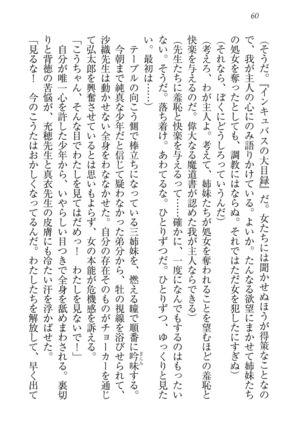 60
(そうだ。『インキュバスの大目録』だ。女たちには聞かせぬほうが得策なことなの
で、我が主人の心にのみ語りかけている。よいか。たんなる欲望にまかせて姉妹たち
の処女を奪ったとしても、調教にはならぬ。それではただ女を犯したにすぎぬ)
(それなら、ぼくにどうしろっていうんだ)
(考えろ、わが主人よ。考えるのだ。姉妹たちが処女を奪われることを望むほどの羞恥と
快楽を与えるのだ。偉大なる魔道書が認めた我が主人ならできる)
(先生たちに羞恥と快楽を与えるって……確かに、一度になんでもするのは無理だ。
そうだ。落ち着け、あわてるな。ひとりずつだ。ひとりずつ、ゆっくりと見た
い。最初は……)
テーブルの向こう側で棒立ちになっている三姉妹を、燃える瞳で順番に吟味する。
今朝まで純真な少年だと信じていた弟分から、牡の視線を浴びせられて、真衣先生と
沙織先生は動かせない全身をわななかせた。そのおののきがチョーカーを通じ
て弘太郎を興奮させているとは思いもよらず、女の本能が危機感を訴える。
「こうちゃん、わたしを見てはだめっ! わたしを見ないで!」
自分が唯一心を許した少年から、いやらしい目つきで全身を舐めまわされる。裏切
りと背徳の苦悩が、充穂先生と真衣先生の皮膚にも冷たい汗を浮かばせた。
「見るな! 今のこうたはおかしくなってるんだ。わたしたちを解放して、早く出て